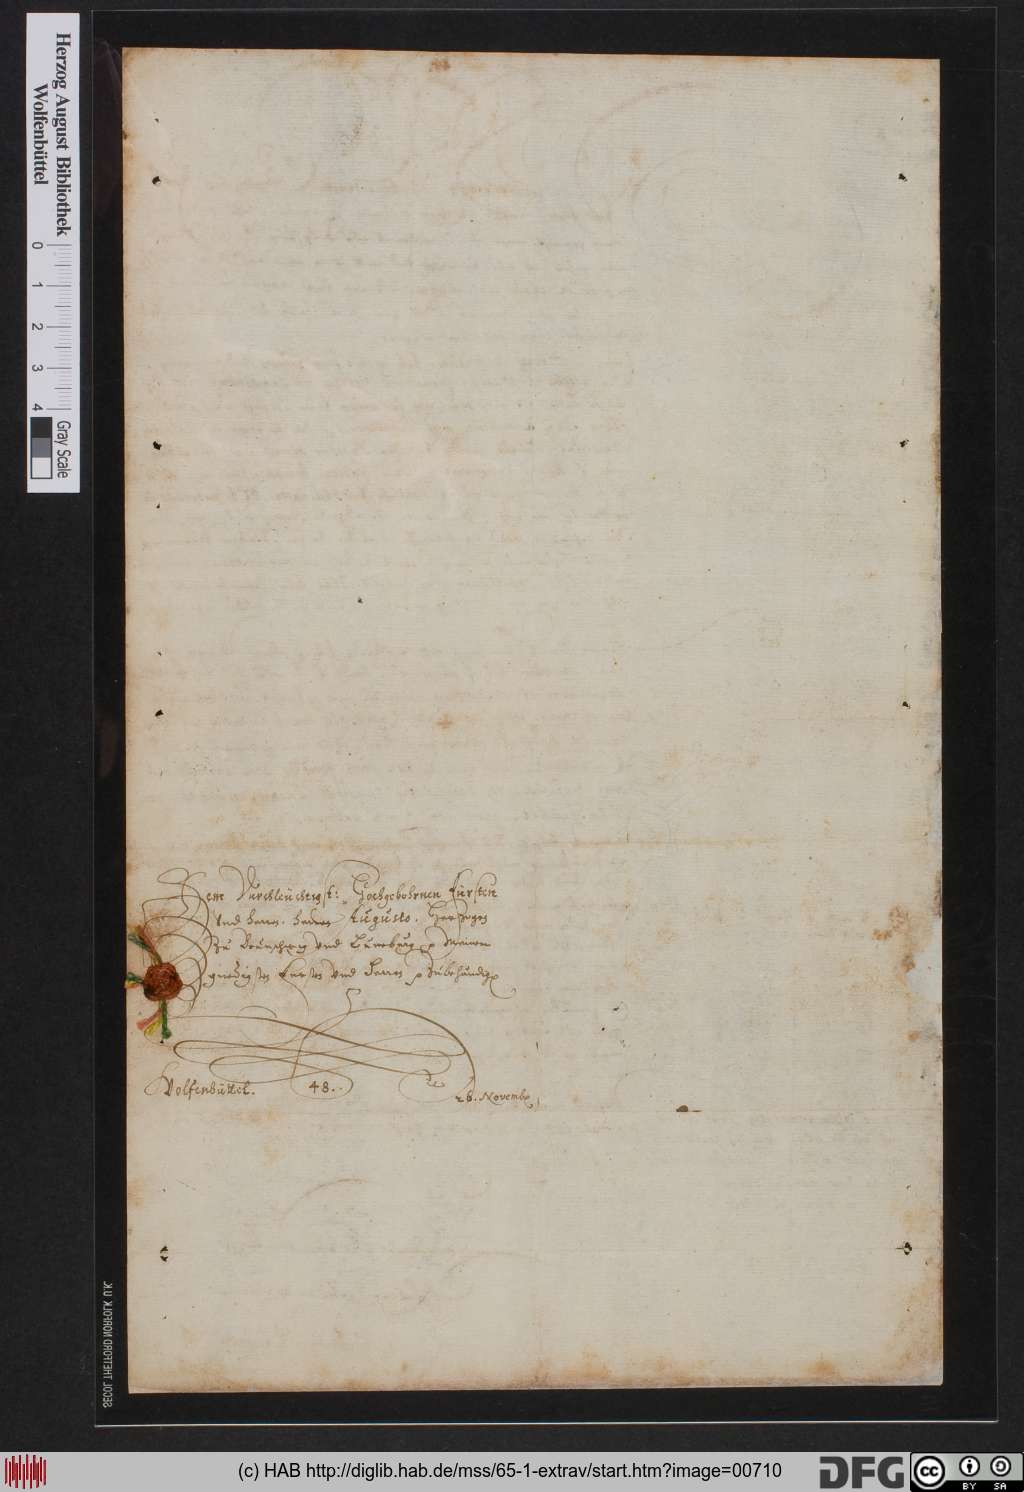 Herzog August Bibliothek
Wolfenbüttel
0 1 2 3 4
Gray Scale
Dem Durchleüchtigst: Hochgebohrnen Fürsten
Und Herrn. Herrn Augusto. Hertzogen
zu Braunschweig und Lüneburg p Meinem
gnedigsten Fürsten und Herrn p
Wolfenbüttel. 48. 26. Novemb
SECOL THETFORD NORFOLK U.K.
(c) HAB http://diglib.hab.de/mss/65-1-extrav/start.htm?image=00710
DFG
cc BY SA